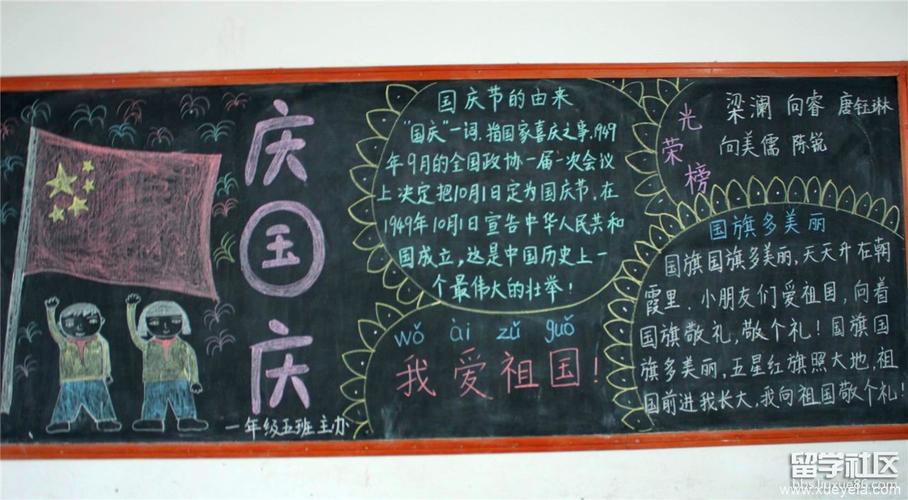 庆国庆
一年级五班主办
国庆节的由来
“国庆”一词，指国家喜庆之事，1949
年9月的全国政协一届一次会议
上决定把10月1日定为国庆节，在
1949年10月1日宣告中华人民共和
国成立，这是中国历史上一
个最伟大的壮举！
wǒ ài zǔ guó
我爱祖国！
光荣榜
梁澜 向睿 唐钰琳
向美儒 陈锐
国旗多美丽
国旗国旗多美丽，天天升在朝
霞里，小朋友们爱祖国，向着
国旗敬礼，敬个礼！国旗国
旗多美丽，五星红旗照大地，祖
国前进我长大，我向祖国敬个礼！
留学社区
bbs.liuxue86.com
www.xueyela.com